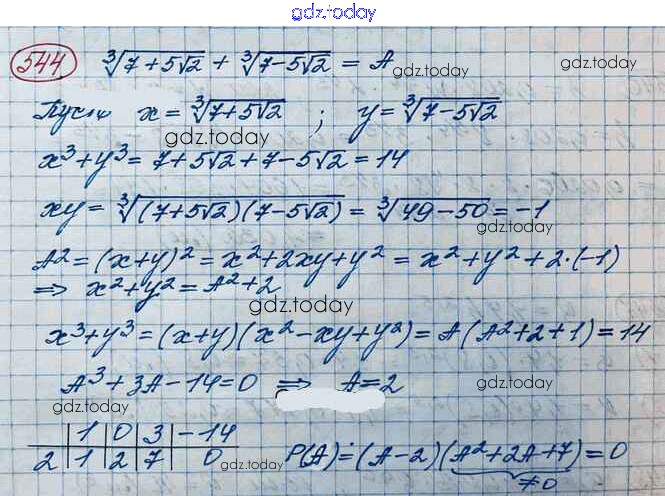 gdz.today
544 ∛(7+5√2) + ∛(7-5√2) = A
gdz.today
Пусть x = ∛(7+5√2) ; y = ∛(7-5√2)
gdz.today
x³+y³ = 7+5√2+7-5√2 = 14
xy = ∛((7+5√2)(7-5√2)) = ∛(49-50) = -1
gdz.today
A² = (x+y)² = x²+2xy+y² = x²+y²+2·(-1)
⇒ x²+y² = A²+2
gdz.today
x³+y³ = (x+y)(x²-xy+y²) = A(A²+2+1) = 14
A³+3A-14=0 ⇒ A=2
gdz.today
gdz.today
| 1 | 0 | 3 | -14
2 | 1 | 2 | 7 | 0
gdz.today
P(A) = (A-2)(A²+2A+7) = 0
≠0